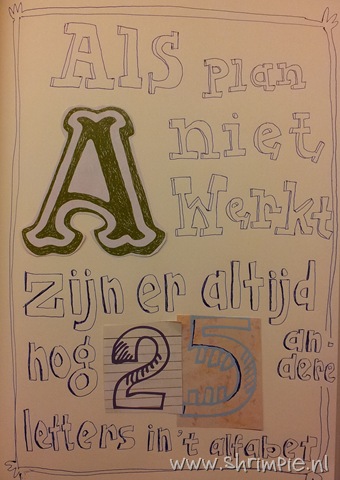 Als plan
A niet
Werkt
zijn er altijd
nog 25 an-
dere
letters in 't alfabet
www.shrimpie.nl